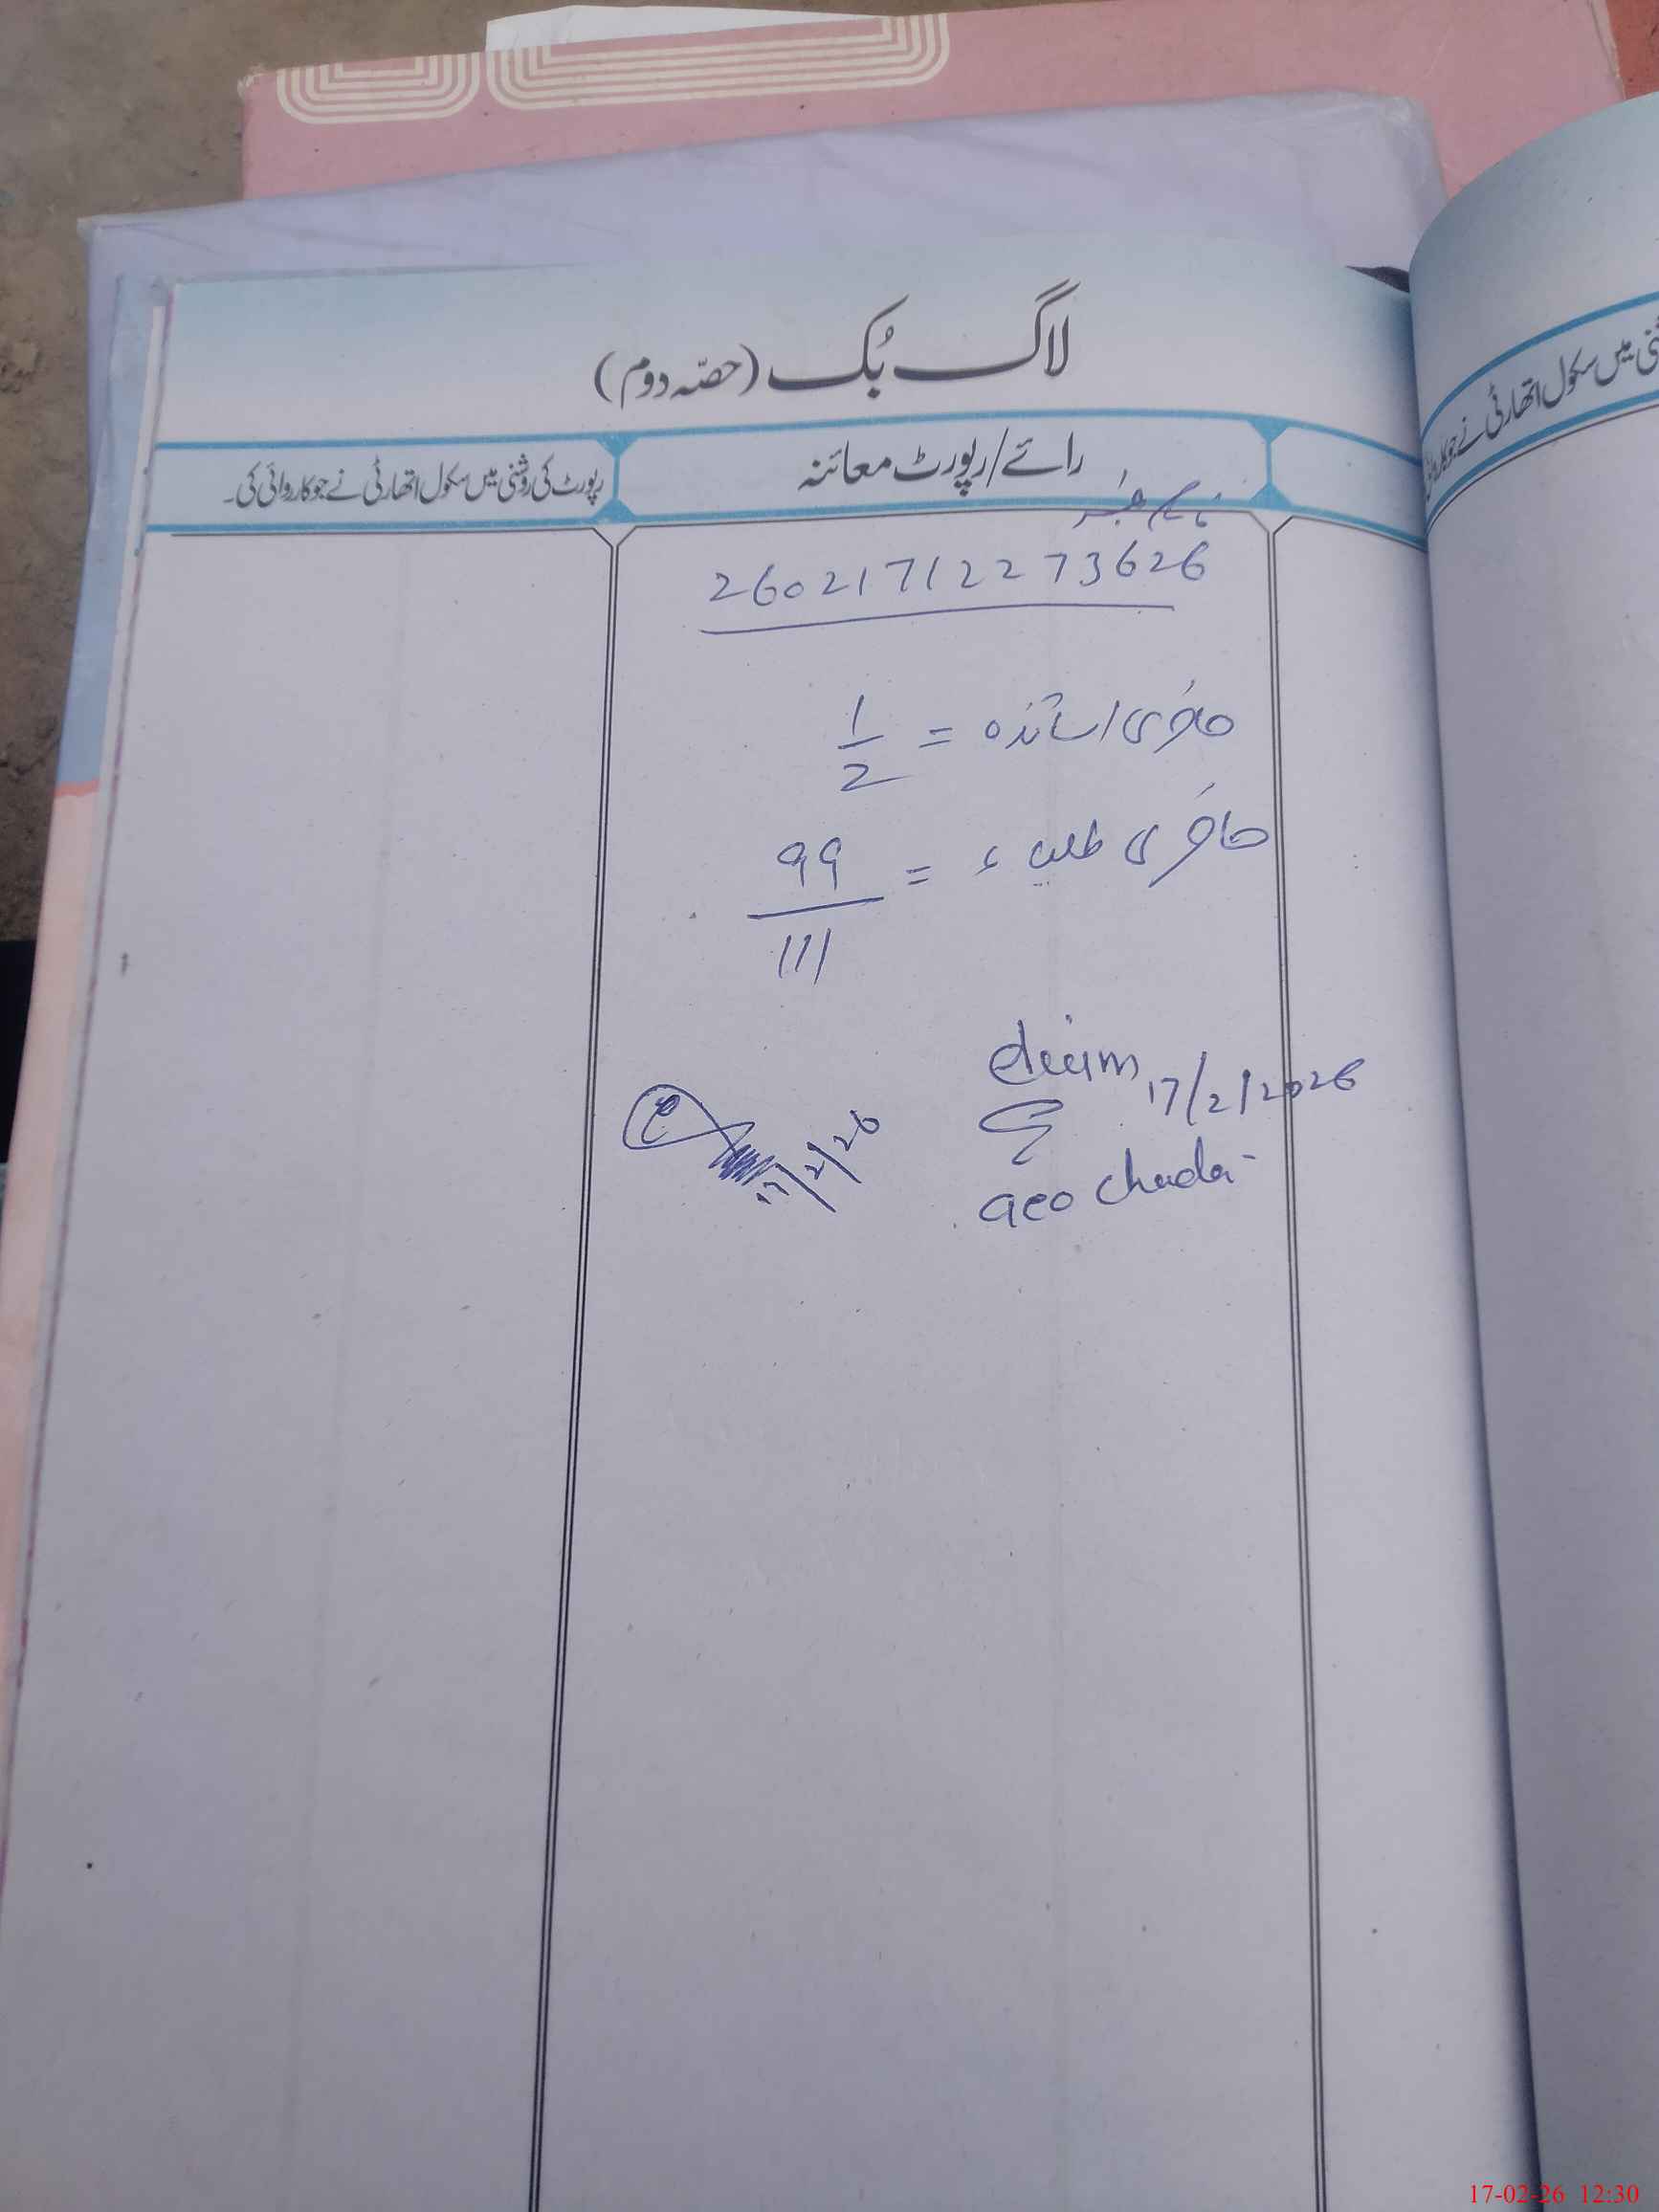 لاگ بُک (حصّہ دوم)
رائے/رپورٹ معائنہ
رپورٹ کی روشنی میں سکول اتھارٹی نے جو کاروائی کی۔
نی میں سکول اتھارٹی نے جو کاروائی
نمبر
26021712273626
حاضری اساتذہ = 1/2
حاضری طلباء = 99/111
17/2/2026
aeo
17/2/26
17-02-26 12:30